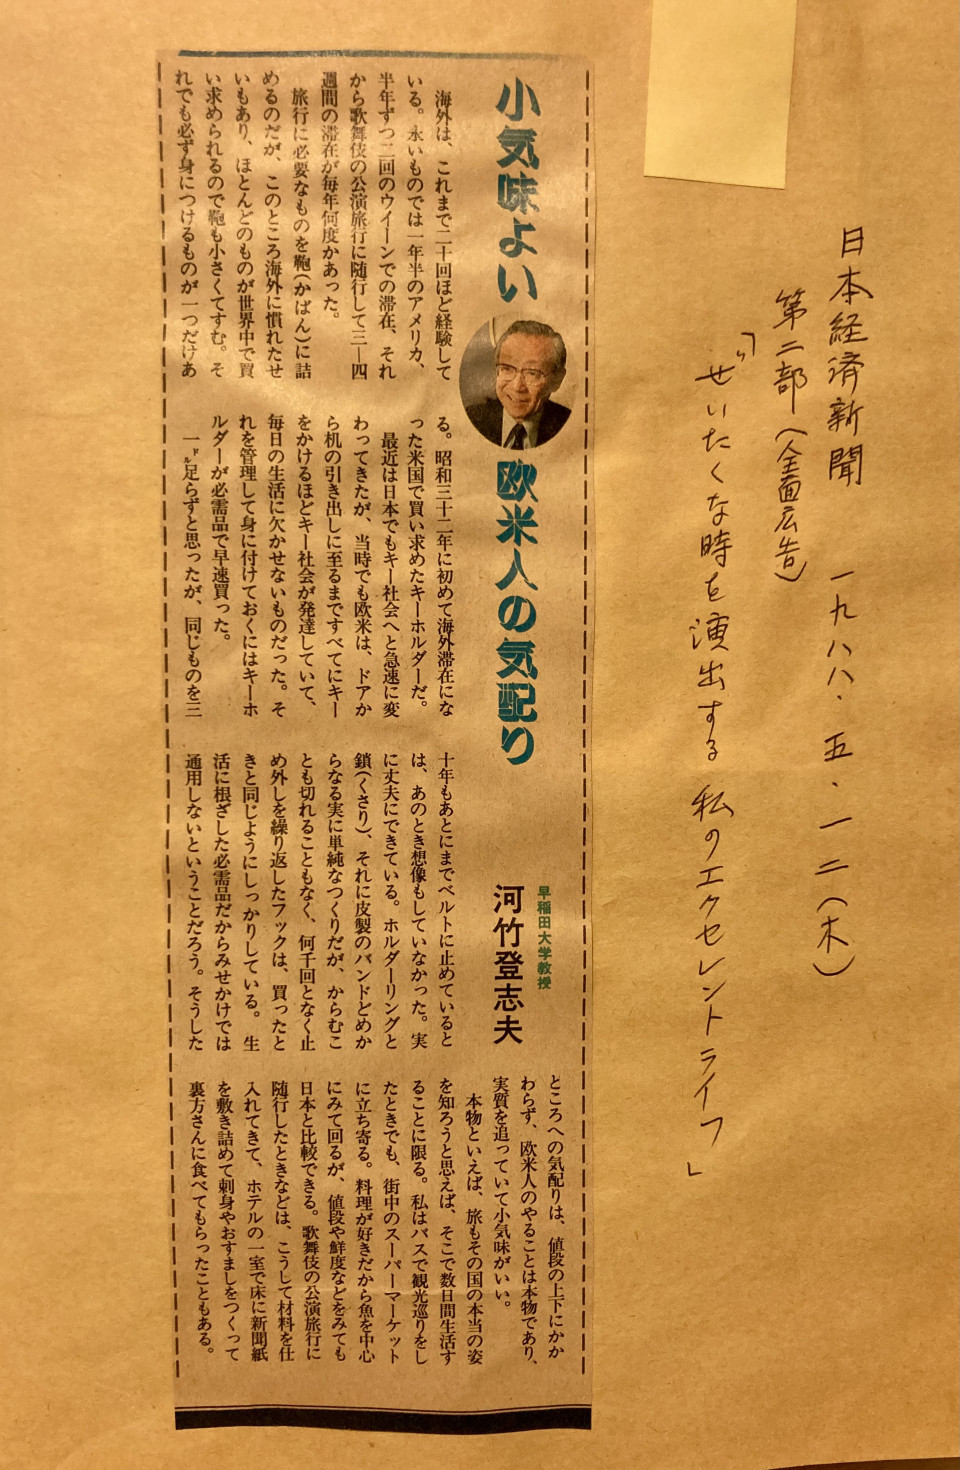 日本経済新聞　一九八八・五・一二(木)
第二部(全面広告)
「ぜいたくな時を演出する私のエクセレントライフ」
小気味よい欧米人の気配り
早稲田大学教授
河竹登志夫
海外は、これまで二十回ほど経験して
いる。永いものでは一年半のアメリカ、
半年ずつ二回のウイーンでの滞在、それ
から歌舞伎の公演旅行に随行して三—四
週間の滞在が毎年何度かあった。
旅行に必要なものを鞄(かばん)に詰
めるのだが、このところ海外に慣れたせ
いもあり、ほとんどのものが世界中で買
い求められるので鞄も小さくてすむ。そ
れでも必ず身につけるものが一つだけあ
る。昭和三十二年に初めて海外滞在にな
った米国で買い求めたキーホルダーだ。
最近は日本でもキー社会へと急速に変
わってきたが、当時でも欧米は、ドアか
ら机の引き出しに至るまですべてにキー
をかけるほどキー社会が発達していて、
毎日の生活に欠かせないものだった。そ
れを管理して身に付けておくにはキーホ
ルダーが必需品で早速買った。
一ドル足らずと思ったが、同じものを三
十年もあとにまでベルトに止めていると
は、あのとき想像もしていなかった。実
に丈夫にできている。ホルダーリングと
鎖(くさり)、それに皮製のバンドどめか
らなる実に単純なつくりだが、からむこ
とも切れることもなく、何千回となく止
め外しを繰り返したフックは、買ったと
きと同じようにしっかりしている。生
活に根ざした必需品だからみせかけでは
通用しないということだろう。そうした
ところへの気配りは、値段の上下にかか
わらず、欧米人のやることは本物であり、
実質を追っていて小気味がいい。
本物といえば、旅もその国の本当の姿
を知ろうと思えば、そこで数日間生活す
ることに限る。私はバスで観光巡りをし
たときでも、街中のスーパーマーケット
に立ち寄る。料理が好きだから魚を中心
にみて回るが、値段や鮮度などをみても
日本と比較できる。歌舞伎の公演旅行に
随行したときなどは、こうして材料を仕
入れてきて、ホテルの一室で床に新聞紙
を敷き詰めて刺身やおすましをつくって
裏方さんに食べてもらったこともある。